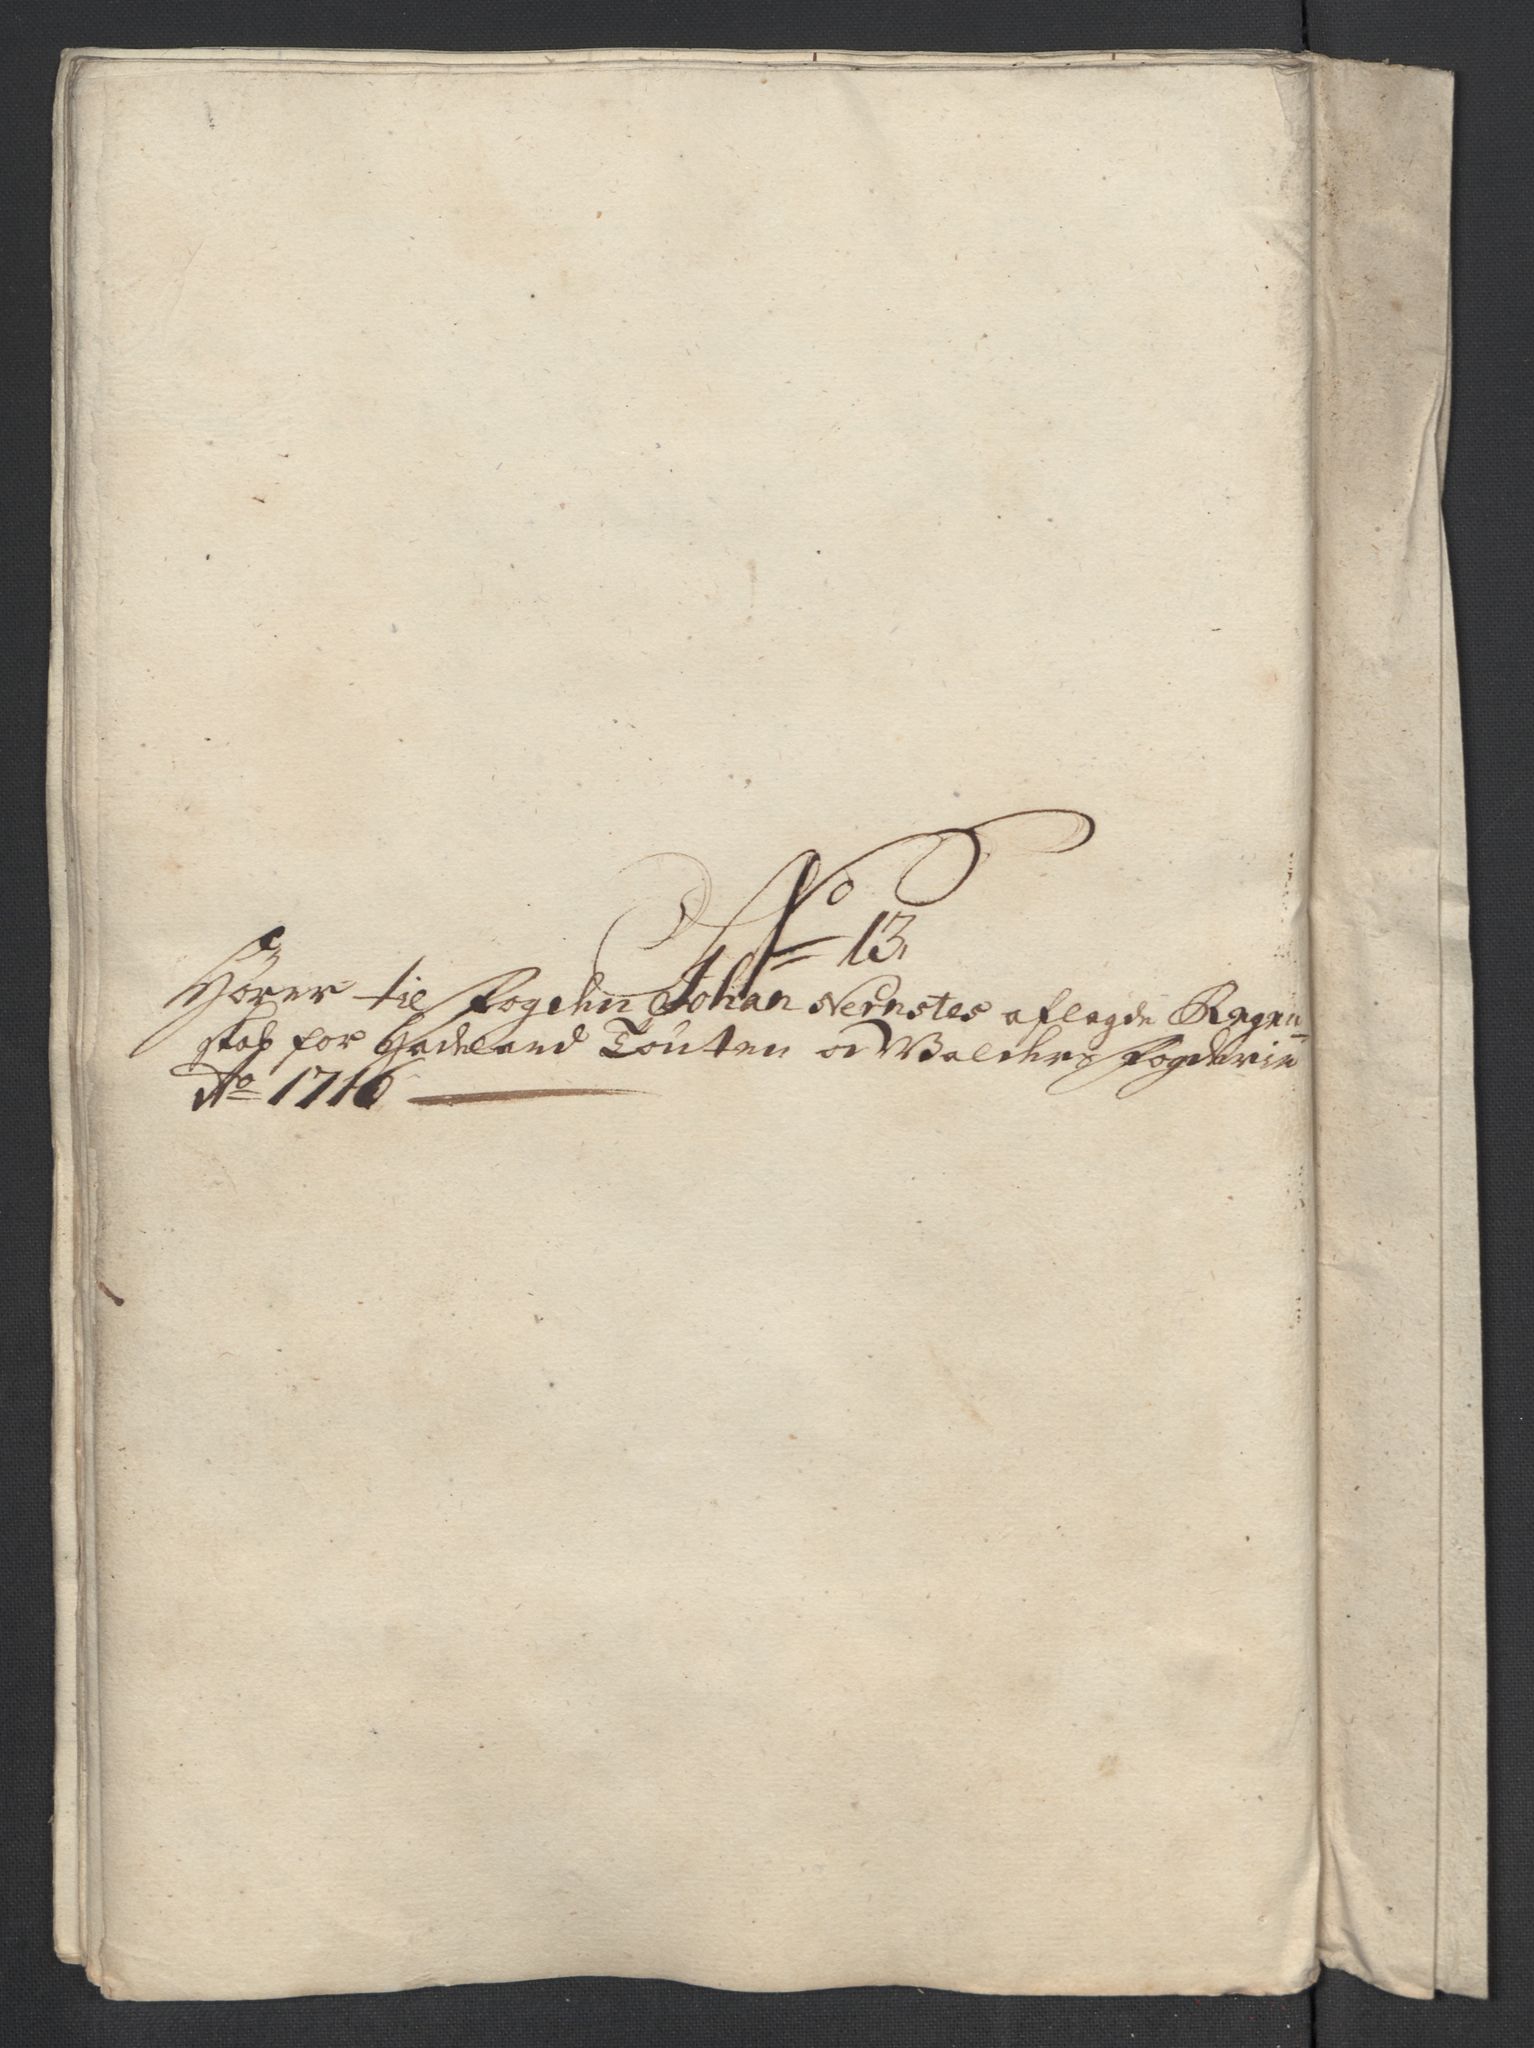 No 13.
Hörer til Fogden Johan Nernstes aflagde Regen
skab for Hadeland Touten og Walders Fogderie
Ao 1716